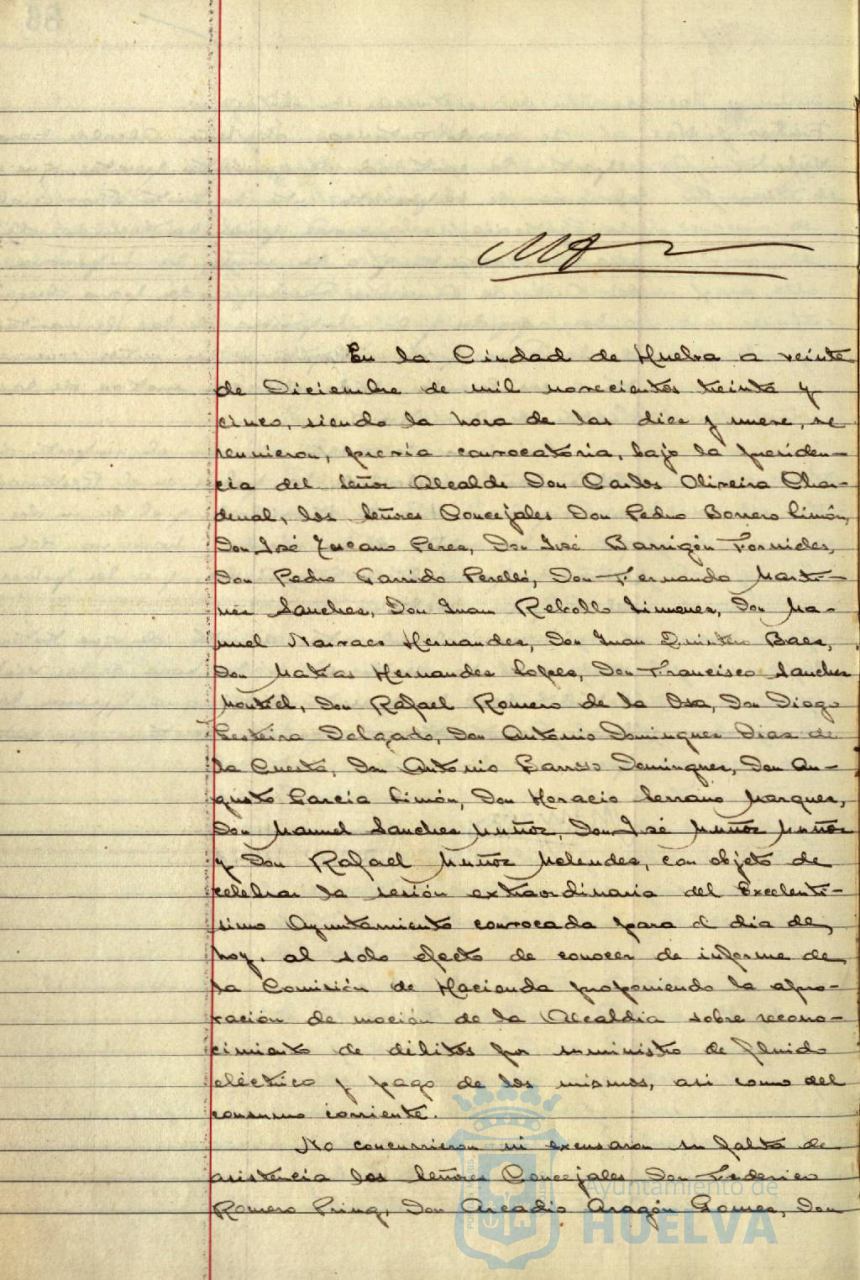 En la Ciudad de Huelva a veinte
de Diciembre de mil novecientos treinta y
cinco, siendo la hora de las diez y nueve, se
reunieron, previa convocatoria, bajo la presiden-
cia del Señor Alcalde Don Carlos Oliveira Cha-
denal, los Señores Concejales Don Pedro Borrero Limón,
Don José Toscano Perea, Don José Barrigón Fornieles,
Don Pedro Garrido Perelló, Don Fernando Marti-
nez Sanchez, Don Juan Rebollo Jimenez, Don Ma-
nuel Narvaez Hernandez, Don Juan Quintero Baez,
Don Matias Hernandez Lopez, Don Francisco Sanchez
Montiel, Don Rafael Romero de la Osa, Don Diego
Delgado, Don Antonio Dominguez Diaz de
la Cuesta, Don Antonio Barroso Dominguez, Don Au-
gusto García Limón, Don Horacio Serrano Marquez,
Don Manuel Sanchez Muñoz, Don José Muñoz Muñoz
y Don Rafael Muñoz Melendez, con objeto de
celebrar la sesión extraordinaria del Excelentí-
simo Ayuntamiento convocada para el dia de
hoy, al solo efecto de conocer de informe de
la Comisión de Hacienda proponiendo la apro-
vación de moción de la Alcaldia sobre recono-
cimiento de débitos por suministro de fluido
eléctrico y pago de los mismos, asi como del
consumo corriente.
No concurrieron ni excusaron su falta de
asistencia los Señores Concejales Don Federico
Romero Pring, Don Arcadio Aragón Gomez, Don
Ayuntamiento de
HUELVA